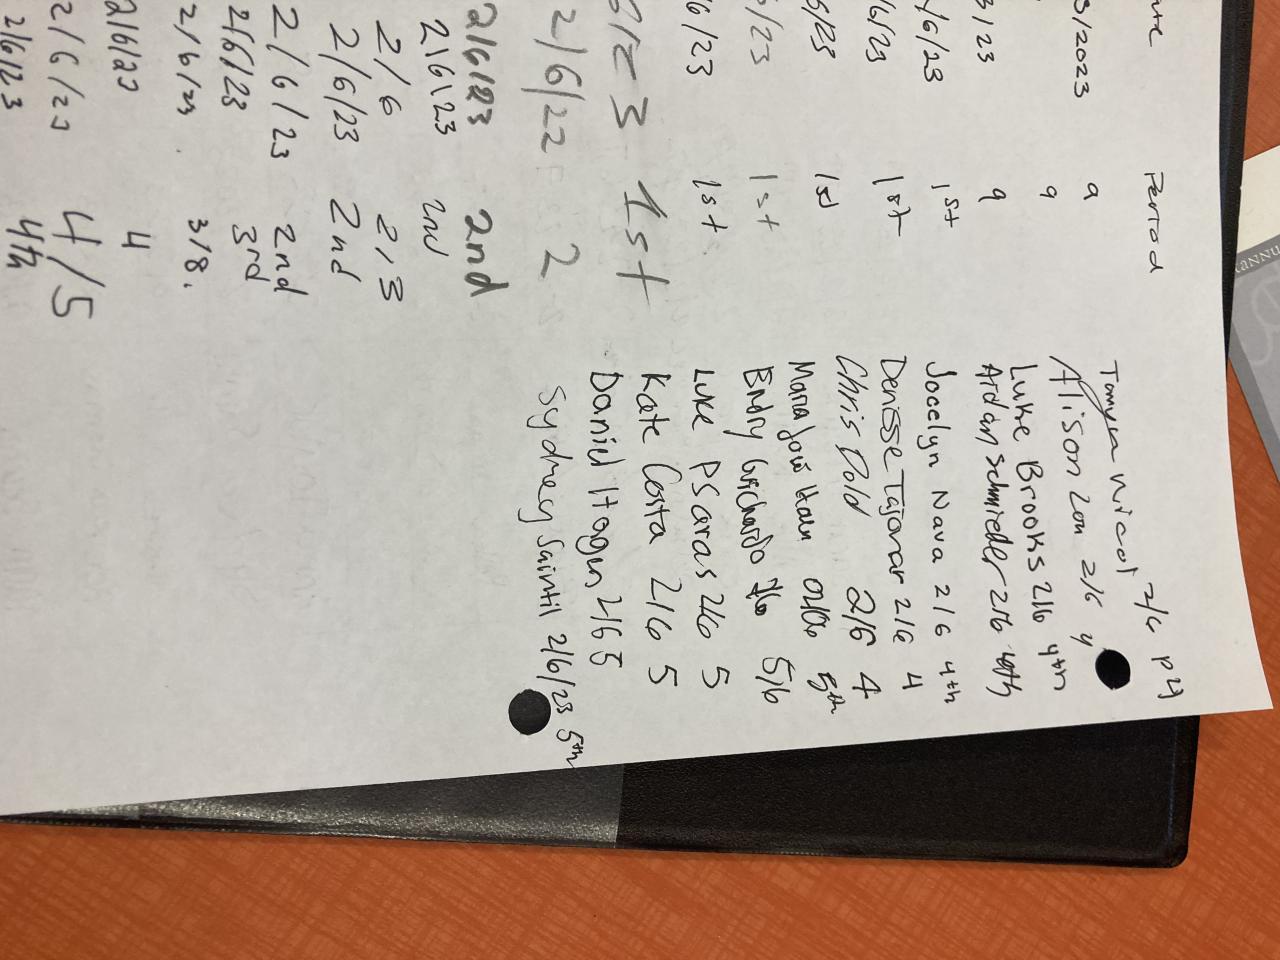 Period
3/2023 9
3/23 9
9
/6/23 1st
/6/23 1st
6/23 1st
/23 1st
/6/23 1st
1st
2/6/22 2
2/6/23 2nd
2/6/23 2nd
2/6 2/3
2/6/23 2nd
2/6/23 2nd
2/6/23 3rd
2/6/23 3/8.
2/6/23 4
2/6/23 4/5
2/6/23 4th
Nicol 2/6
Alison 2/6 4
Luke Brooks 2/6 4th
Aidan Schmieder 2/6
Jocelyn Nava 2/6 4th
Denisse Tajonar 2/6 4
Chris Dold 2/6 4
Maria José 5th
5/6
Luke Psaras 2/6 5
Kate Costa 2/6 5
Daniel Hogan 2/6 5
Sydney Saintil 2/6/23 5th